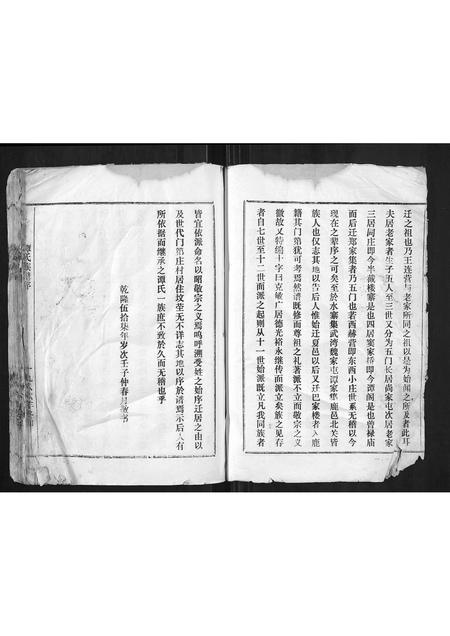 迁之祖也乃王连营与老家所同之祖以是为始闻之所及者此耳
夫居老家者生子五人至三世又分为五门长居尚家屯次居老家
三居问庄即今半截楼寨是也四居窦家桥即今谭阁是也曾禄庙
而后迁郑家集者乃五门也若西赫营即东西小庄世系无稽以今
现在之辈序之可矣至於水寨集武湾魏家屯谭家集鹿邑北关皆
族人也仅志其地以告后人惟始迁夏邑以后又迁巴家楼者入鹿
籍其门第犹可考焉然谱既修而尊祖之礼著派不立而敬宗之义
微故又特编十字曰克敏广居德光裕永继传而派立矣族之见存
者自七世至十二世而派之起则从十一世始派既立凡我同族者
皆宜依派命名以昭敬宗之义焉呜呼溯受姓之始序迁居之由以
及世代门第庄村居住坟茔无不详志其地以序於谱焉示后人有
所依据而继承之谭氏一族庶不致於久而无稽也乎
乾隆伍拾柒年岁次壬子仲春月
氏族谱序